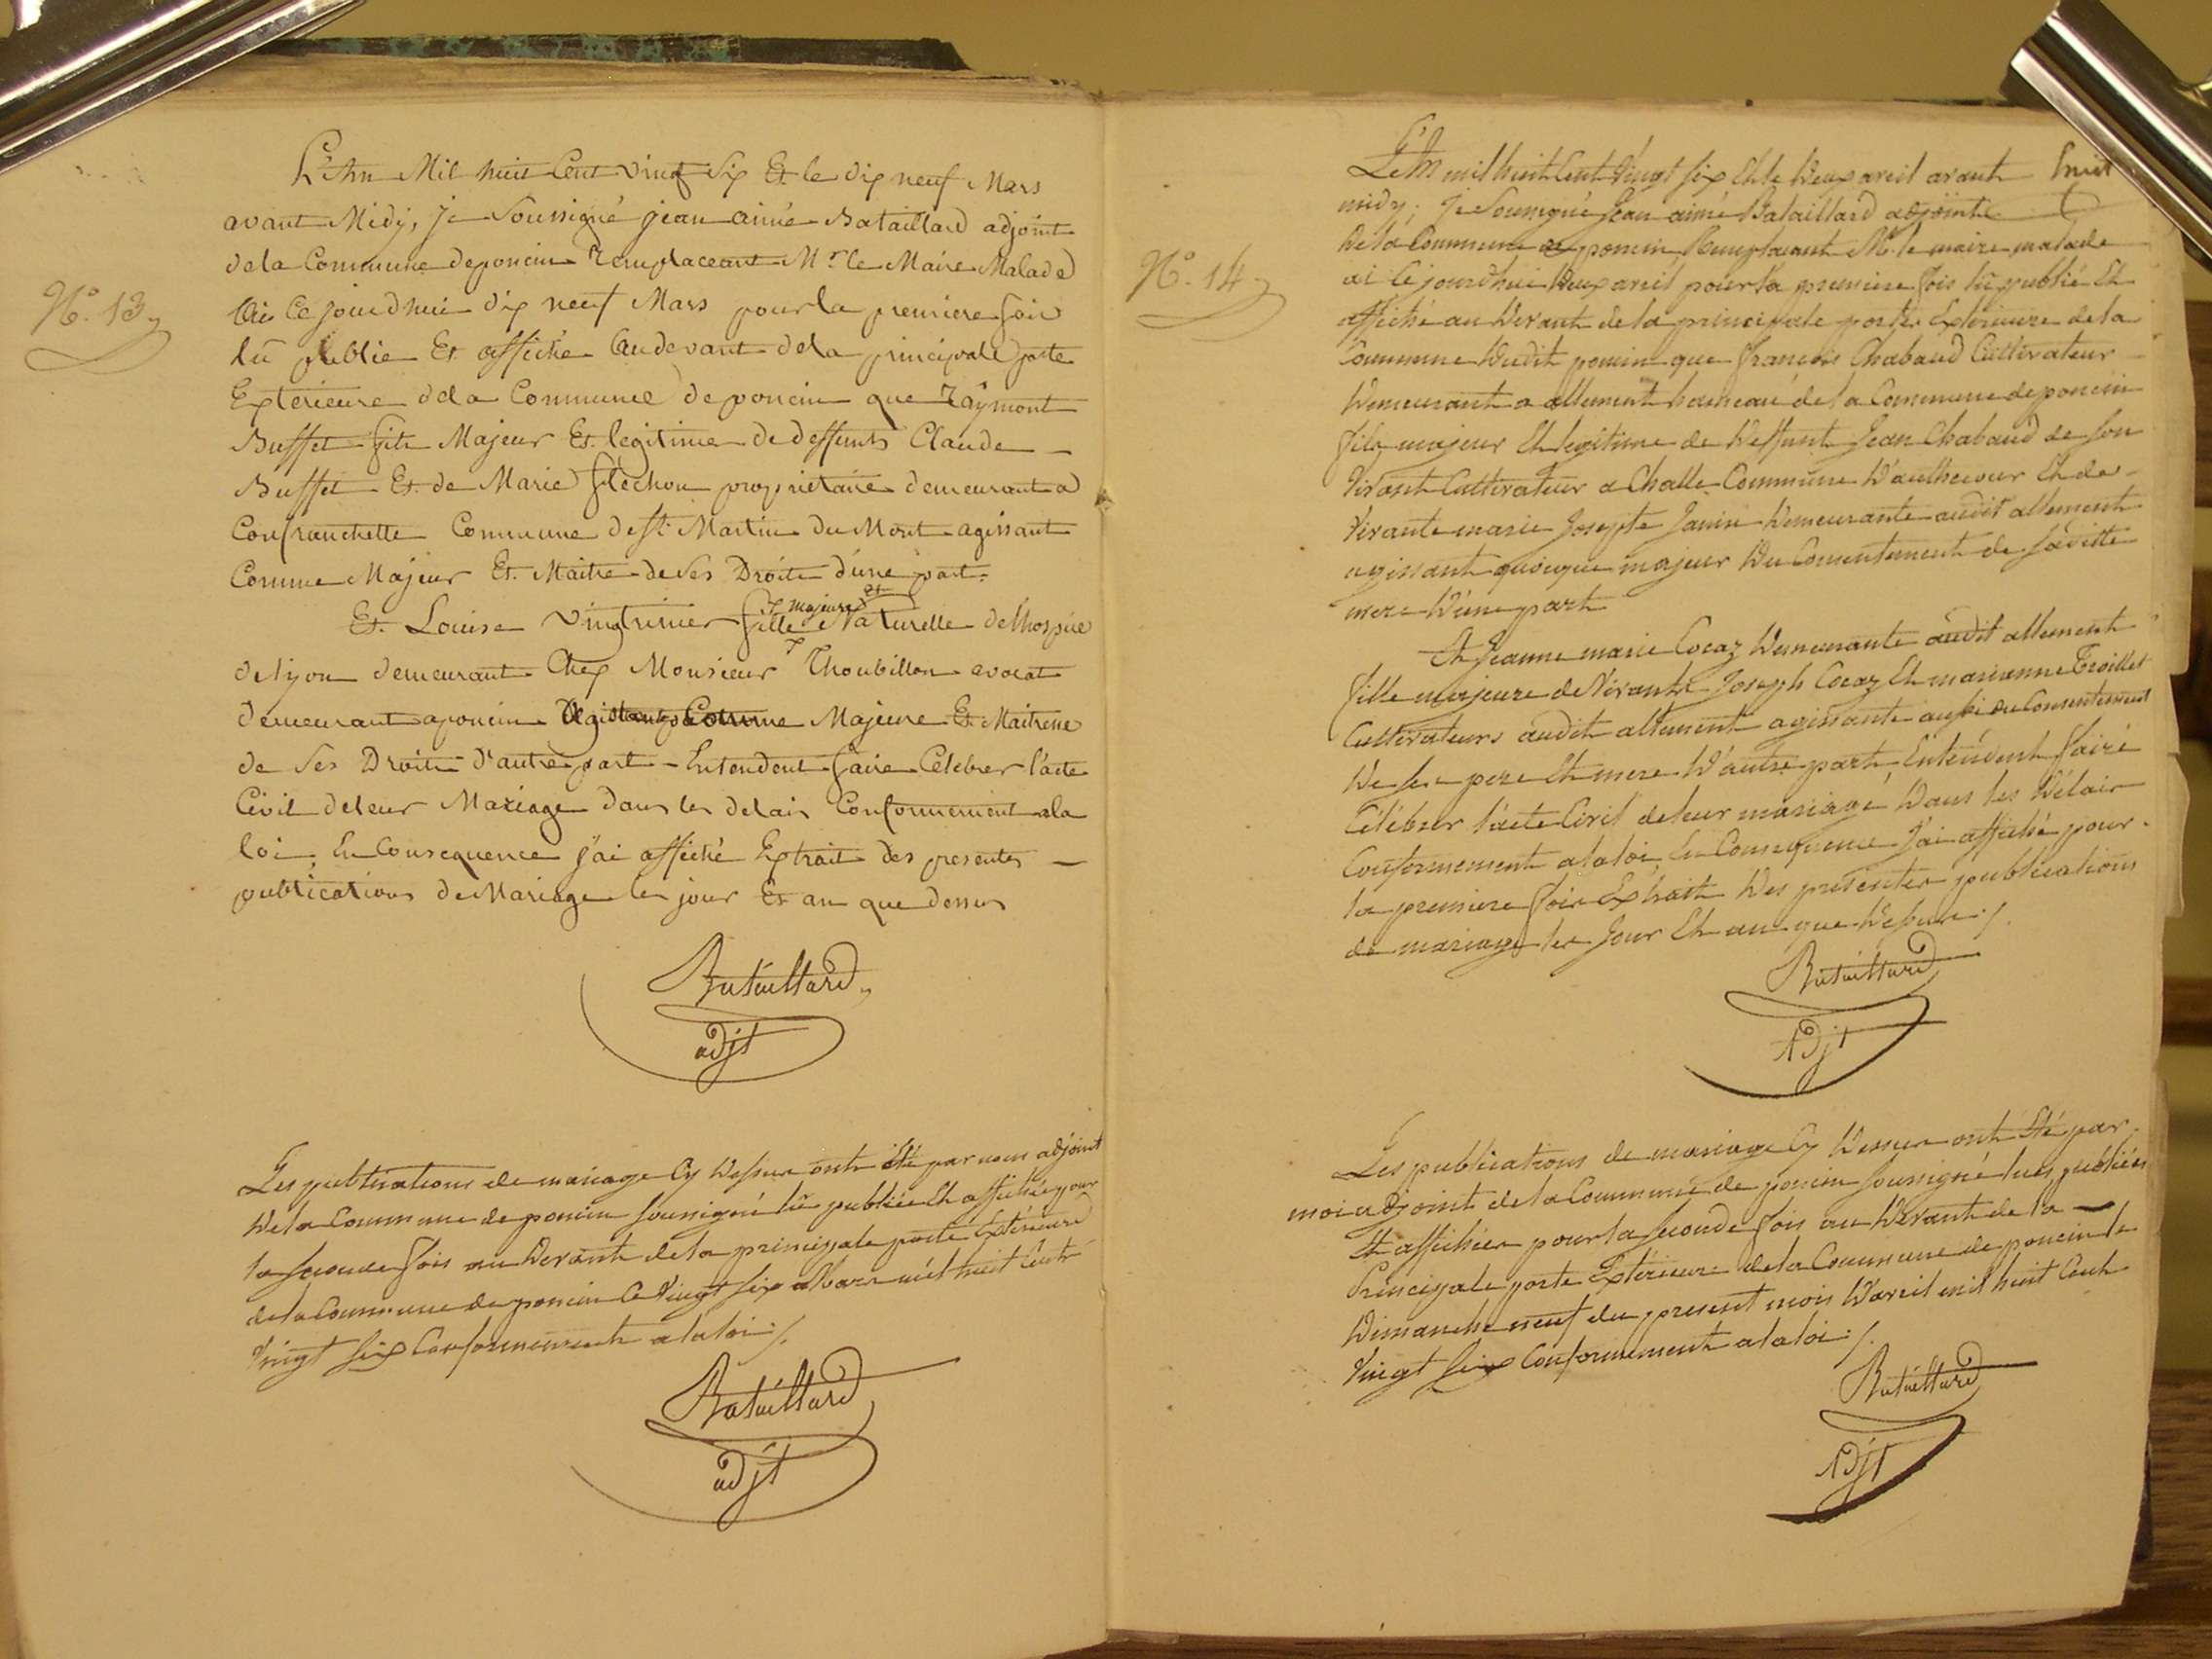 N.º 13
L'An Mil huit Cent vingt Six Et le dix neuf Mars
avant Midy, Je Soussigné jean aimé Bataillard adjoint
dela Commune deponcin Remplaceant Mr le Maire Malade
Ai Ce jourdhui dix neuf Mars pour la premiere fois
lû publié Et affiché Audevant dela principale porte
Exterieure dela Commune deponcin que Raÿmont
Buffet fils Majeur Et legitime de deffunts Claude
Buffet Et de Marie fléchon proprietaire demeurant a
Confranchette Commune de St Martin du Mont agissant
Comme Majeur Et Maitre de Ses Droits d'une part
Et Louise Vingtrinier fille majeure et Naturelle delhospice
delyon demeurant Chez Monsieur Thoubillon avocat
demeurant aponcin Agissant Comme Majeure Et Maitresse
de Ses Droits d'autre part - Entendent faire Célébrer l'acte
Civil deleur Mariage dans les delais Conformement ala
loi, En Consequence j'ai affiché Extrait des presentes
publications de Mariage les jour Et an que dessus
Bataillard
adjt
Les publications de mariage Cy dessus ont été par nous adjoint
de la Commune de poncin soussigné lû publiée Et affichée pour
la seconde fois au devant de la principale porte Extérieure
de la Commune de poncin Ce vingt six Mars mil huit Cent
Vingt Six Conformement a la loi ./.
Bataillard
adjt
N.º 14
L'An mil huit Cent Vingt Six Et le deux avril avant huit
midy, Je Soussigné Jean aimé Bataillard adjoint
de la Commune de poncin Remplacant Mr. le maire malade
ai Cejourd'hui deux avril pour la premiere fois lû publié Et
affiché au devant de la principale porte Extérieure de la
Commune dudit poncin que françois Chabaud Cultivateur
demeurant a allement hameau de la Commune de poncin
fils majeur Et legitime de deffunt Jean Chabaud de son
Vivant Cultivateur a Challe Commune d'aulhecour Et de
Vivante marie Josepte Janin demeurante audit allement
agissant quoique majeur du Consentement de sadite
mere d'une part
Et Jeanne marie Cocaz demeurante audit allement
fille majeure de Vivants Joseph Cocaz Et marianne Troillet
Cultivateurs audit allement agissante aussi du Consentement
de ses pere Et mere d'autre part, Entendent faire
Célébrer l'acte Civil de leur mariage dans les délais
Conformement a la loi, En Consequence J'ai affiché pour
la premiere fois Extrait des presentes publications
de mariage les Jour Et an que dessus ./.
Bataillard
Adjt
Les publications de mariage Cy dessus ont été par
moi adjoint de la Commune de poncin soussigné lues, publiées
Et affichées pour la seconde fois au devant de la
Principale porte Extérieure de la Commune de poncin le
Dimanche neuf du present mois d'avril mil huit Cent
Vingt Six Conformement a la loi ./.
Bataillard
Adjt